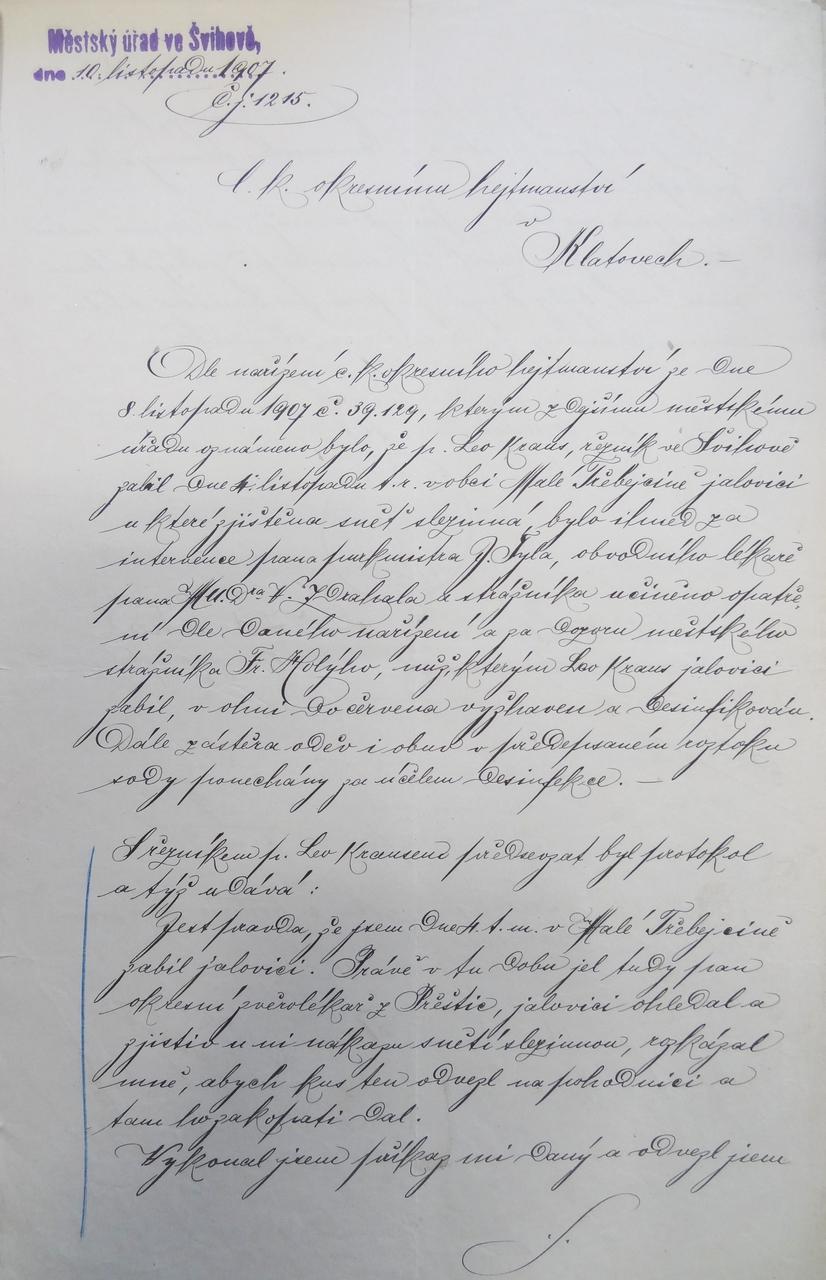 Městský úřad ve Švihově,
dne 10. listopadu 1907.
č. j. 1215.
C. k. okresnímu hejtmanství
v
Klatovech. —
Dle nařízení c. k. okresního hejtmanství ze dne
8. listopadu 1907 č. 39.129, kterým zdejšímu městskému
úřadu oznámeno bylo, že p. Leo Kraus, řezník ve Švihově
zabil dne 4. listopadu t. r. v obci Malé Třebejcině jalovici
u které zjištěna sněť slezinná, bylo ihned za
intervence pana purkmistra J. Tyla, obvodního lékaře
pana MU.Dra V. Zdrahala a strážníka učiněno opatře-
ní dle daného nařízení a za dozoru městského
strážníka Fr. Holýho, nůž, kterým Leo Kraus jalovici
zabil, v ohni do červena vyžhaven a desinfikován.
Dále zástěra oděv i obuv v předepsaném roztoku
sody ponechány za účelem desinfekce. —
S řezníkem p. Leo Krausem předsevzat byl protokol
a týž udává:
Jest pravda, že jsem dne 4. t. m. v Malé Třebejcině
zabil jalovici. Právě v tu dobu jel tudy pan
okresní zvěrolékař z Přeštic, jalovici ohledal a
zjistiv u ni nákazu snětí slezinnou, rozkázal
mně, abych kus ten odvezl na pohodnici a
tam ho zakopati dal.
Vykonal jsem příkaz mi daný a odvezl jsem